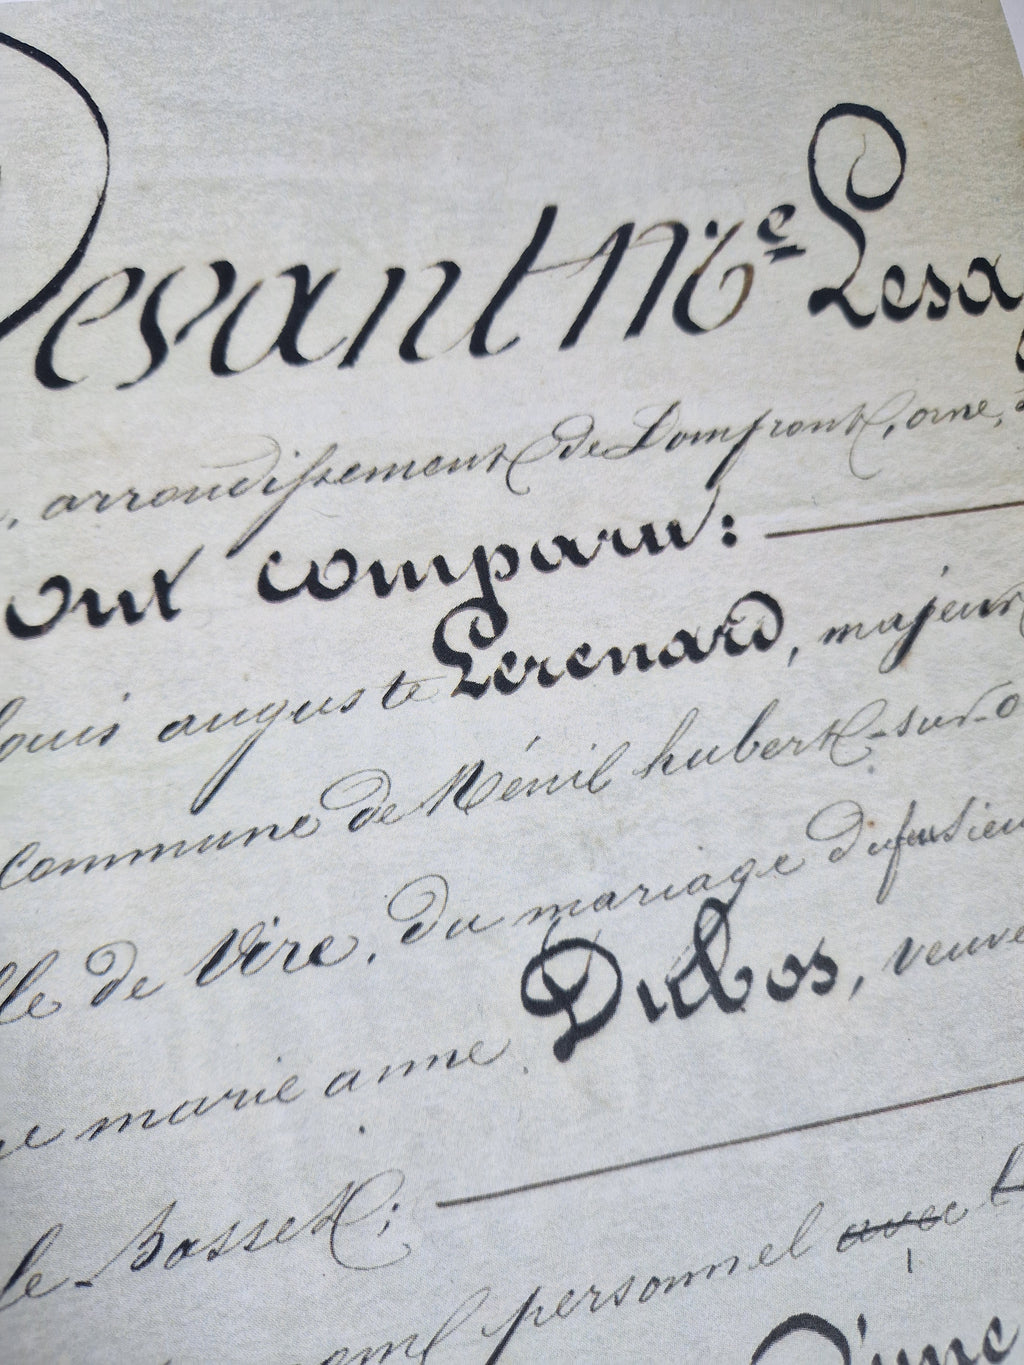 Devant Me Lesa
, arrondissement de Domfront, orne,
ont comparu:
Louis auguste Lerenard, majeur
commune de Ménil hubert-sur-o
de Vire, du mariage du
marie anne Dubos, veuve
le Bosset;
personnel avec
D'une